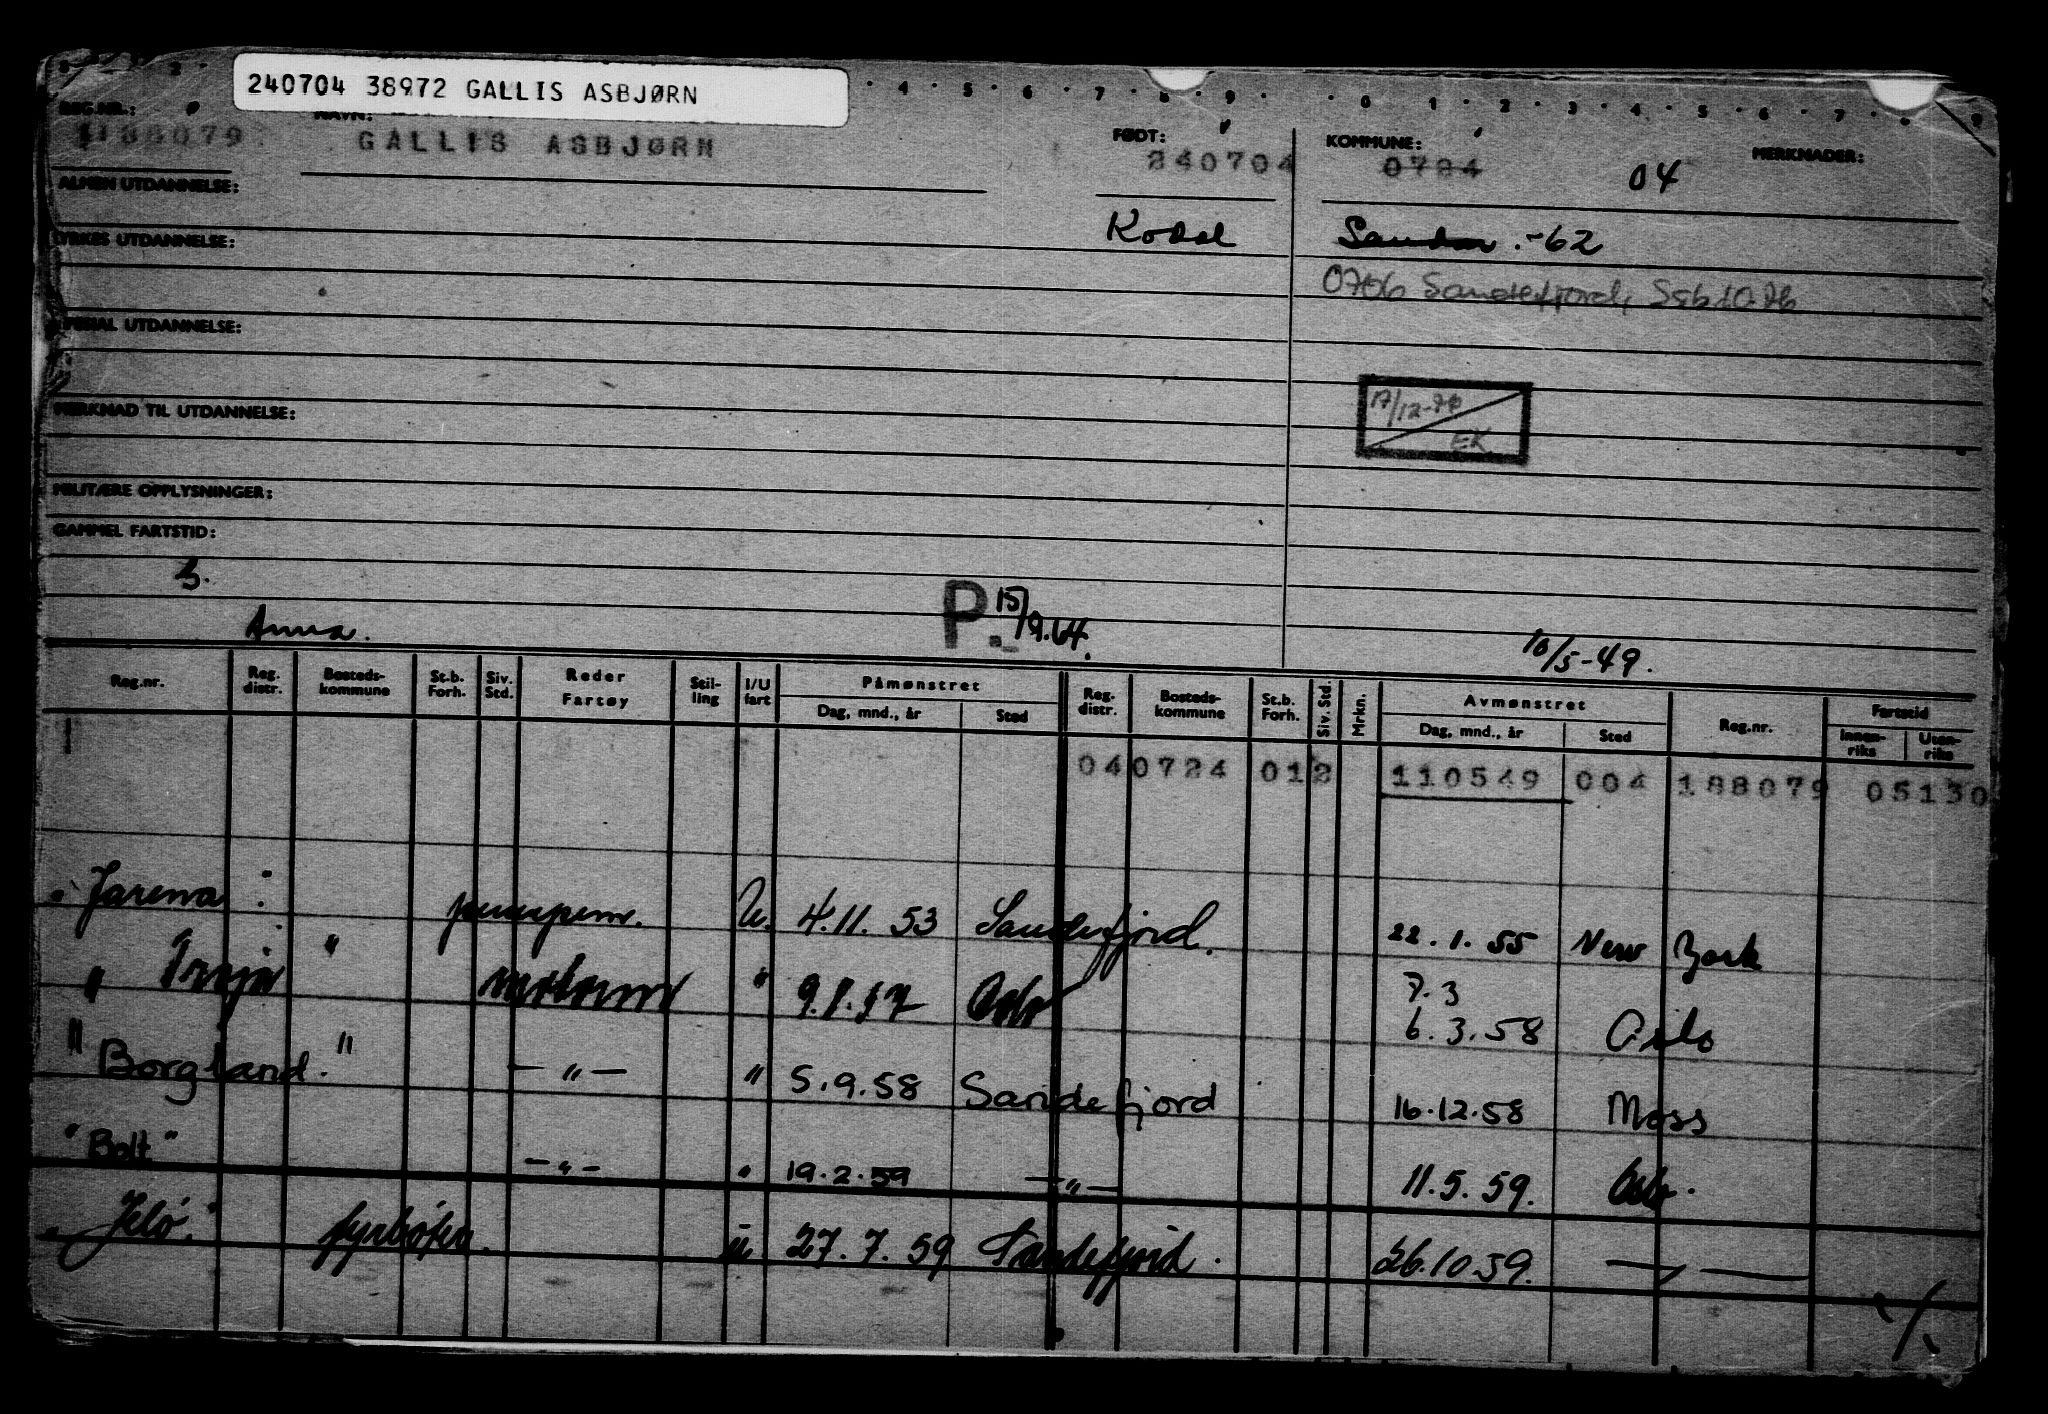 240704 38972 GALLIS ASBJØRN
REG.NR.: NAVN: FØDT: KOMMUNE: MERKNADER:
188079 GALLIS ASBJØRN 240704 0724 04
ALMEN UTDANNELSE:
Kodal Sandar.-62
YRKES UTDANNELSE:
0706 Sandefjord,
SPESIAL UTDANNELSE:
17/12-70
EK
MERKNAD TIL UTDANNELSE:
MILITÆRE OPPLYSNINGER:
GAMMEL FARTSTID:
3.
P. 15/9.64.
Anna. 10/5-49.
Reg.nr. Reg. distr. Bosteds-kommune St.b. Forh. Siv. Std. Reder Fartøy Stil-ling I/U fart Påmønstret Dag, mnd., år Sted Reg. distr. Bosteds-kommune St.b. Forh. Siv. Std. Mrkn. Avmønstret Dag, mnd., år Sted Reg.nr. Fartstid Innen-riks Uten-riks
04 0724 012 110549 004 188079 05130
"Jarena" pumpem. U. 4.11.53 Sandefjord. 22.1.55 New York
7.3
" " motorm " Oslo 6.3.58 Oslo
"Borgland." — " — " 5.9.58 Sandefjord 16.12.58 Moss
"Bolt" — " — " 19.2.59 — " — 11.5.59. Oslo.
"Jelø" fyrbøter. U 27.7.59 Sandefjord. 26.10.59. — " —